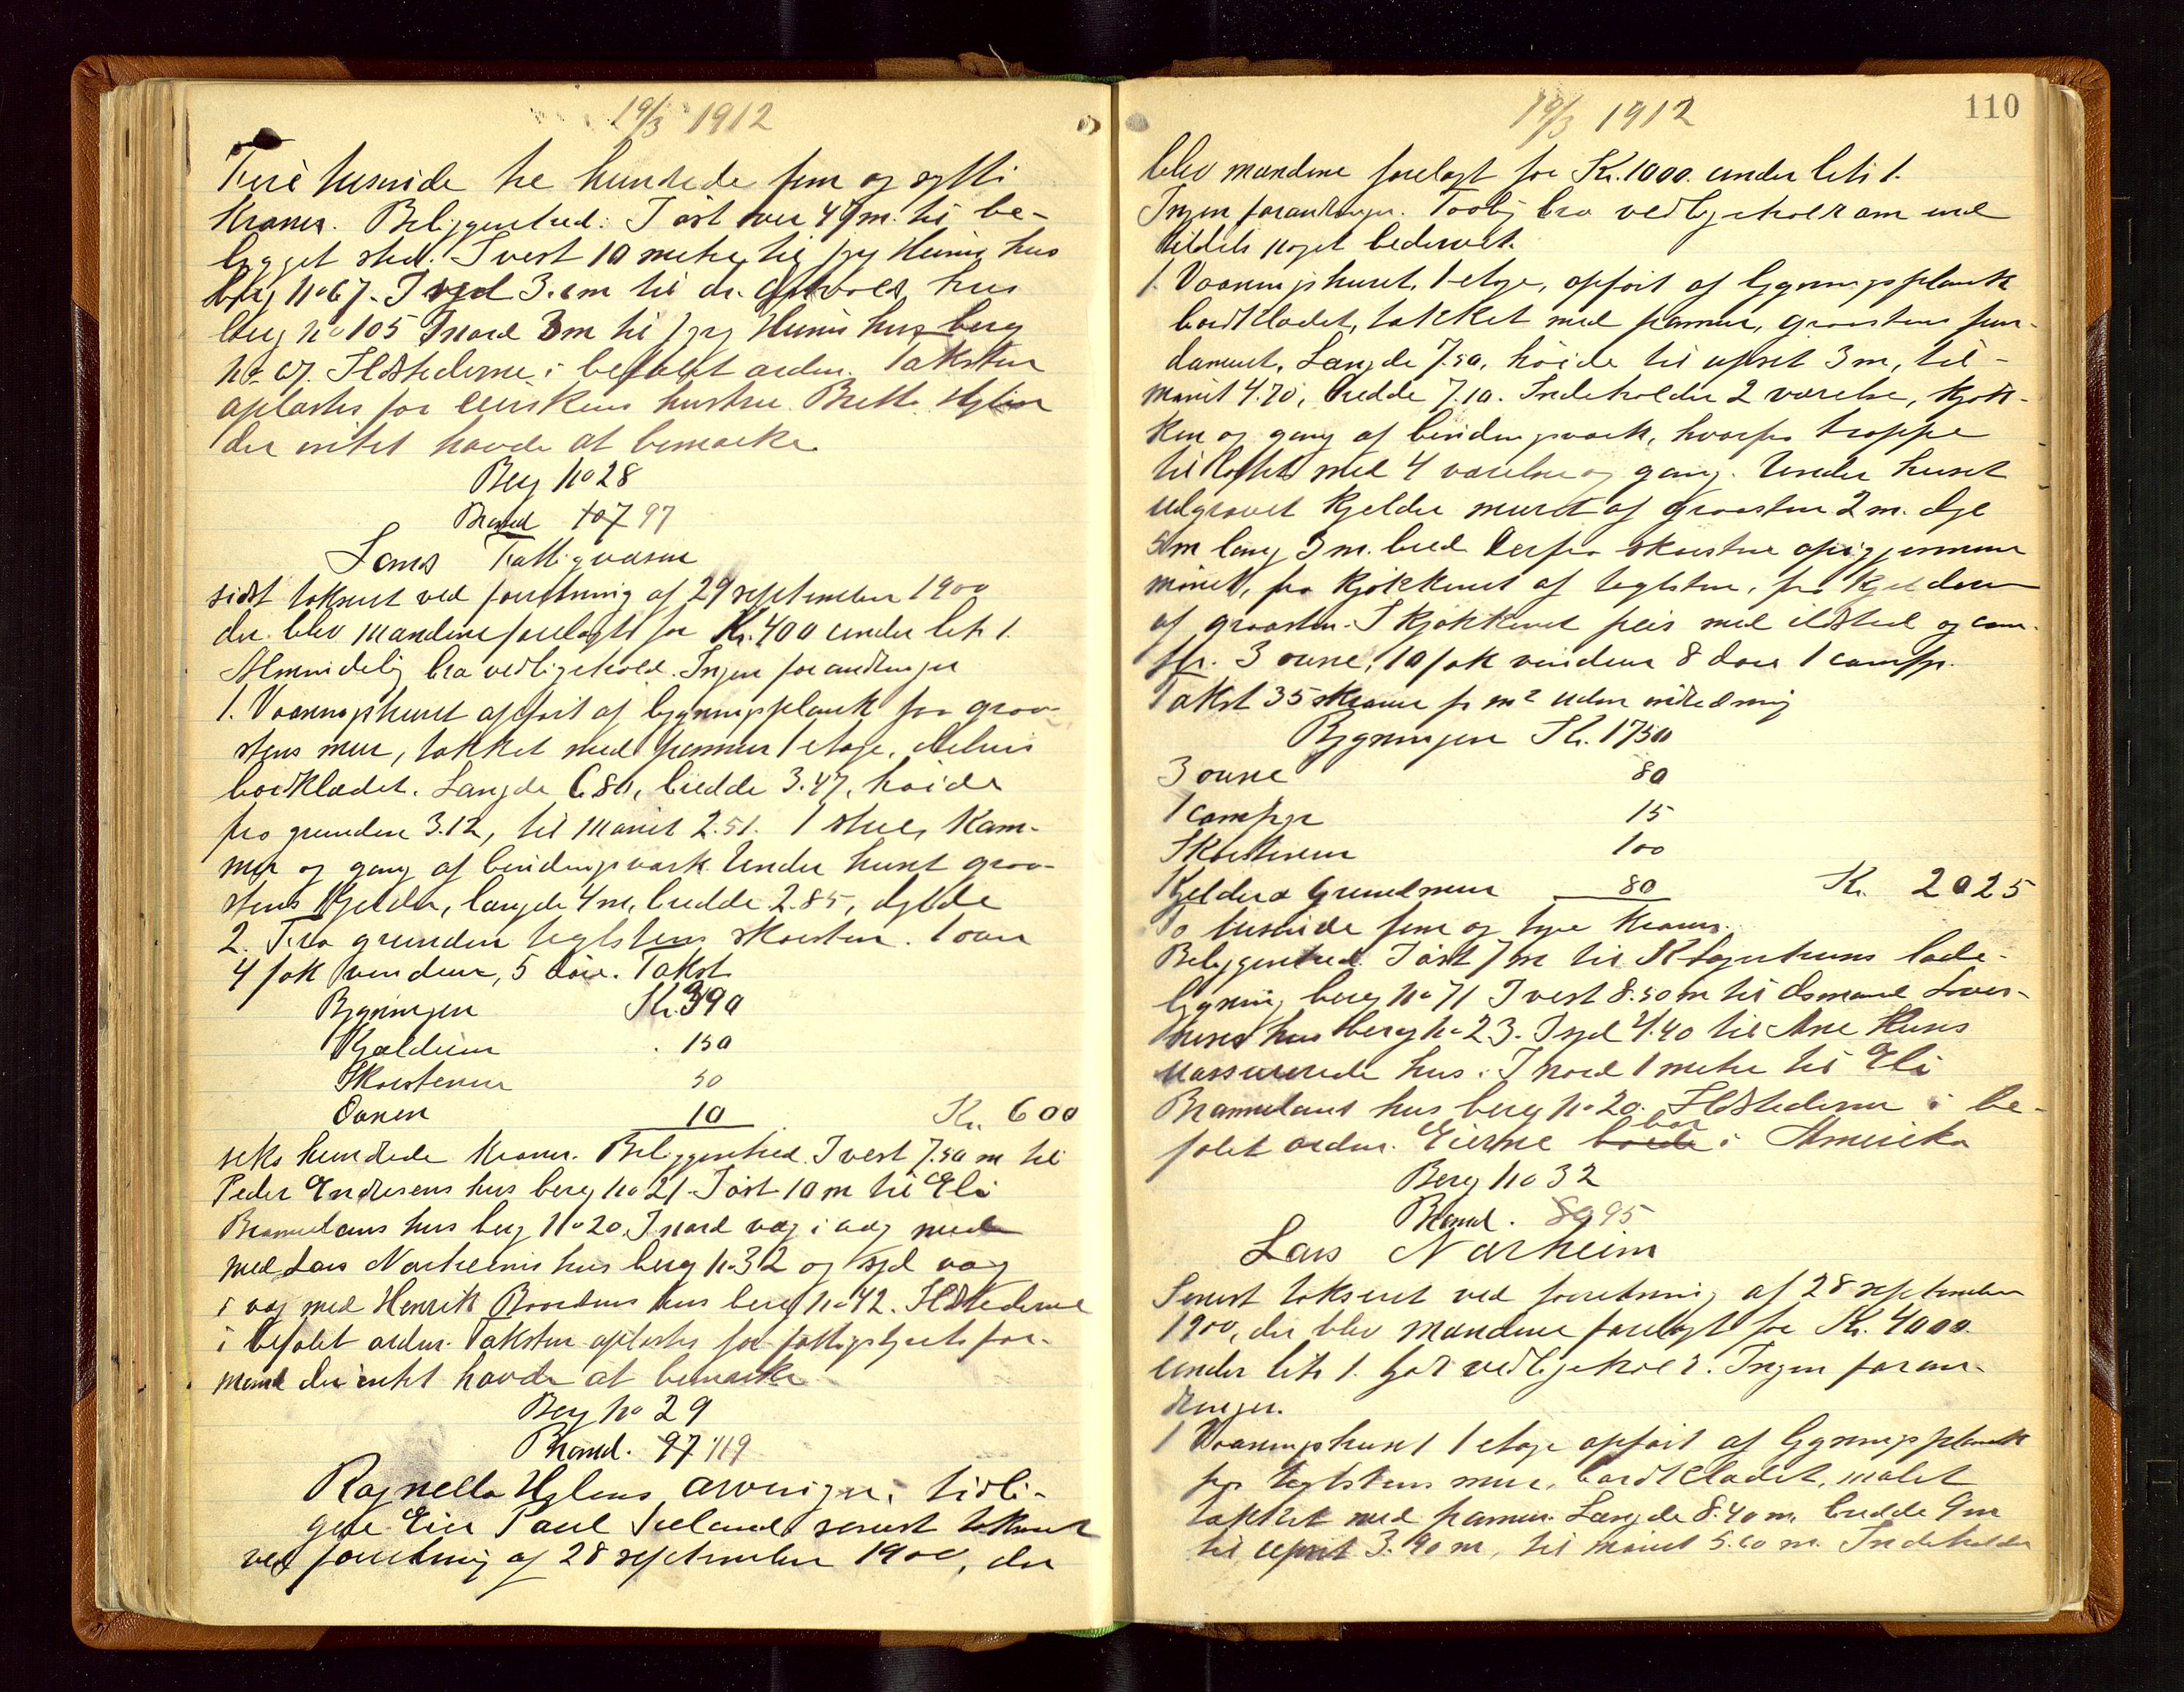 19/3 1912
Fire tusinde tre hundrede fem og sytti
Kroner. Beliggenhed: I øst over 47 m. til be-
bygget sted. I vest 10 meter til hus
berg no 67. I syd 3. m til hus
berg no 105 I nord 3 m til hus berg
no 67. Ildstederne i befalet orden. Taksten
oplæstes for hustru
der intet havde at bemærke.
Berg no 28
Brand 107 97
Lands Fattigvæsen
sidst taksert ved forretning af 29 september 1900
der blev mandene forelagt for Kr. 400 under litr 1.
Almindelig bra vedligehold. Ingen forandringer
1. Vaaningshuset opført af bygningsplank paa graa-
stens mur, takket med panner 1 etage, delvis
bordklædet. Længde 6.80, bredde 3.47, høide
fra grunden 3.12, til mønet 2.51. 1 stue, Kam-
mer og gang af bindingsværk. Under huset graa-
stens Kjelder, længde 4 m, bredde 2.85, dybde
2. Fra grunden teglstens skorsten. 1 ovn
4 fak vinduer, 5 døre. Takst
Bygningen Kr. 390
Kjælderen 150
Skorstenen 50
Ovnen 10 Kr. 600
seks hundrede Kroner. Beliggenhed. I vest 7.50 m til
Peder Endresens hus berg no 21. I øst 10 m til Eli
Bramelands hus berg no 20. I nord væg i væg med
med Lars Norheims hus berg no 32 og syd væg
i væg med Henrik hus berg no 42. Ildstederne
i befalet orden. Taksten oplæstes for fattigstyrets for-
mand der intet havde at bemærke
Berg no 29
Brand. 97 119
Ragnella Hylens arvinger, tidli-
gere Eier Paul senest taksert
ved forretning af 28 september 1900, der
19/3 1912 110
blev mandene forelagt for Kr. 1000. under litr 1.
Ingen forandringer. bra vedligehold om end
tildels noget bedervet.
1. Vaaningshuset, 1 etage, opført af bygningsplank
bordklædet, takket med panner, graastens fun-
dament, Længde 7.50, høide til opsat 3 m, til
mønet 4.70, bredde 7.10. Indeholder 2 værelser, kjøk-
ken og gang af bindingsværk, hvorfra trappe
til loftet med 4 værelser og gang. Under huset
udgravet kjelder muret af graasten 2 m. dyb
5 m lang 3 m. bred. Derfra skorsten op igjennem
mønet, fra kjøkkenet af teglsten, fra kjelderen
af graasten. I kjøkkenet peis med ildsted og com-
fyr. 3 ovne, 10 fak vinduer 8 døre 1 comfyr.
Takst 35 Kroner pr m2 uden indredning
Bygningen Kr. 1750
3 ovne 80
1 comfyr 15
Skorstenen 100
Kjelder & Grundmur 80 Kr. 2025
To tusinde fem og tyve Kroner.
Beliggenhed. I øst 7 m til lade-
bygning berg no 71 I vest 8.50 m til Osmund
hus berg no 23. I syd 4.40 til Ane
uassurerede hus. I nord 1 meter til Eli
Bramelands hus berg no 20. Ildstederne i be-
falet orden. Eierne bor i Amerika
Berg no 32
Brand. 89 95
Lars Norheim
Senest taksert ved forretning af 28 september
1900, der blev mandene forelagt for Kr. 4000.
under litr 1. godt vedligehold. Ingen foran-
dringer.
1 Vaaningshuset 1 etage opført af bygningsplank
paa teglstens mur, bordklædet, malet
takket med panner. Længde 8.40 m. bredde 9 m
til opsat 3.90 m, til mønet 5.60 m. Indeholder